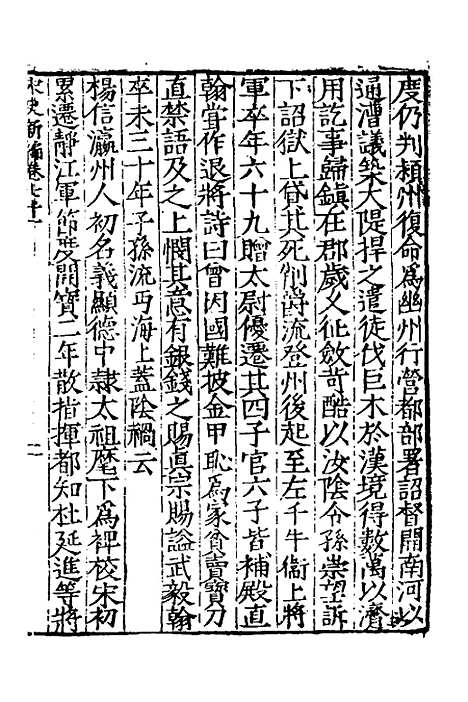 度仍判潁州復命為幽州行營都部署詔督開南河以
通漕議築大隄捍之遣徒伐巨木於漢境得數萬以濟
用訖事歸鎮在郡歲久征斂苛酷以汝陰令孫崇望訴
下詔獄上貸其死削爵流登州後起至左千牛衛上將
軍卒年六十九贈太尉優遷其四子官六子皆補殿直
翰嘗作退將詩曰曾因國難披金甲恥為家貧賣寶刀
直禁語及之上憫其意有銀錢之賜真宗賜諡武毅翰
卒未三十年子孫流丐海上蓋陰禍云
楊信瀛州人初名義顯德中隸太祖麾下為裨校宋初
累遷靜江軍節度開寶二年散指揮都知杜延進等將
宋史新編卷七十一